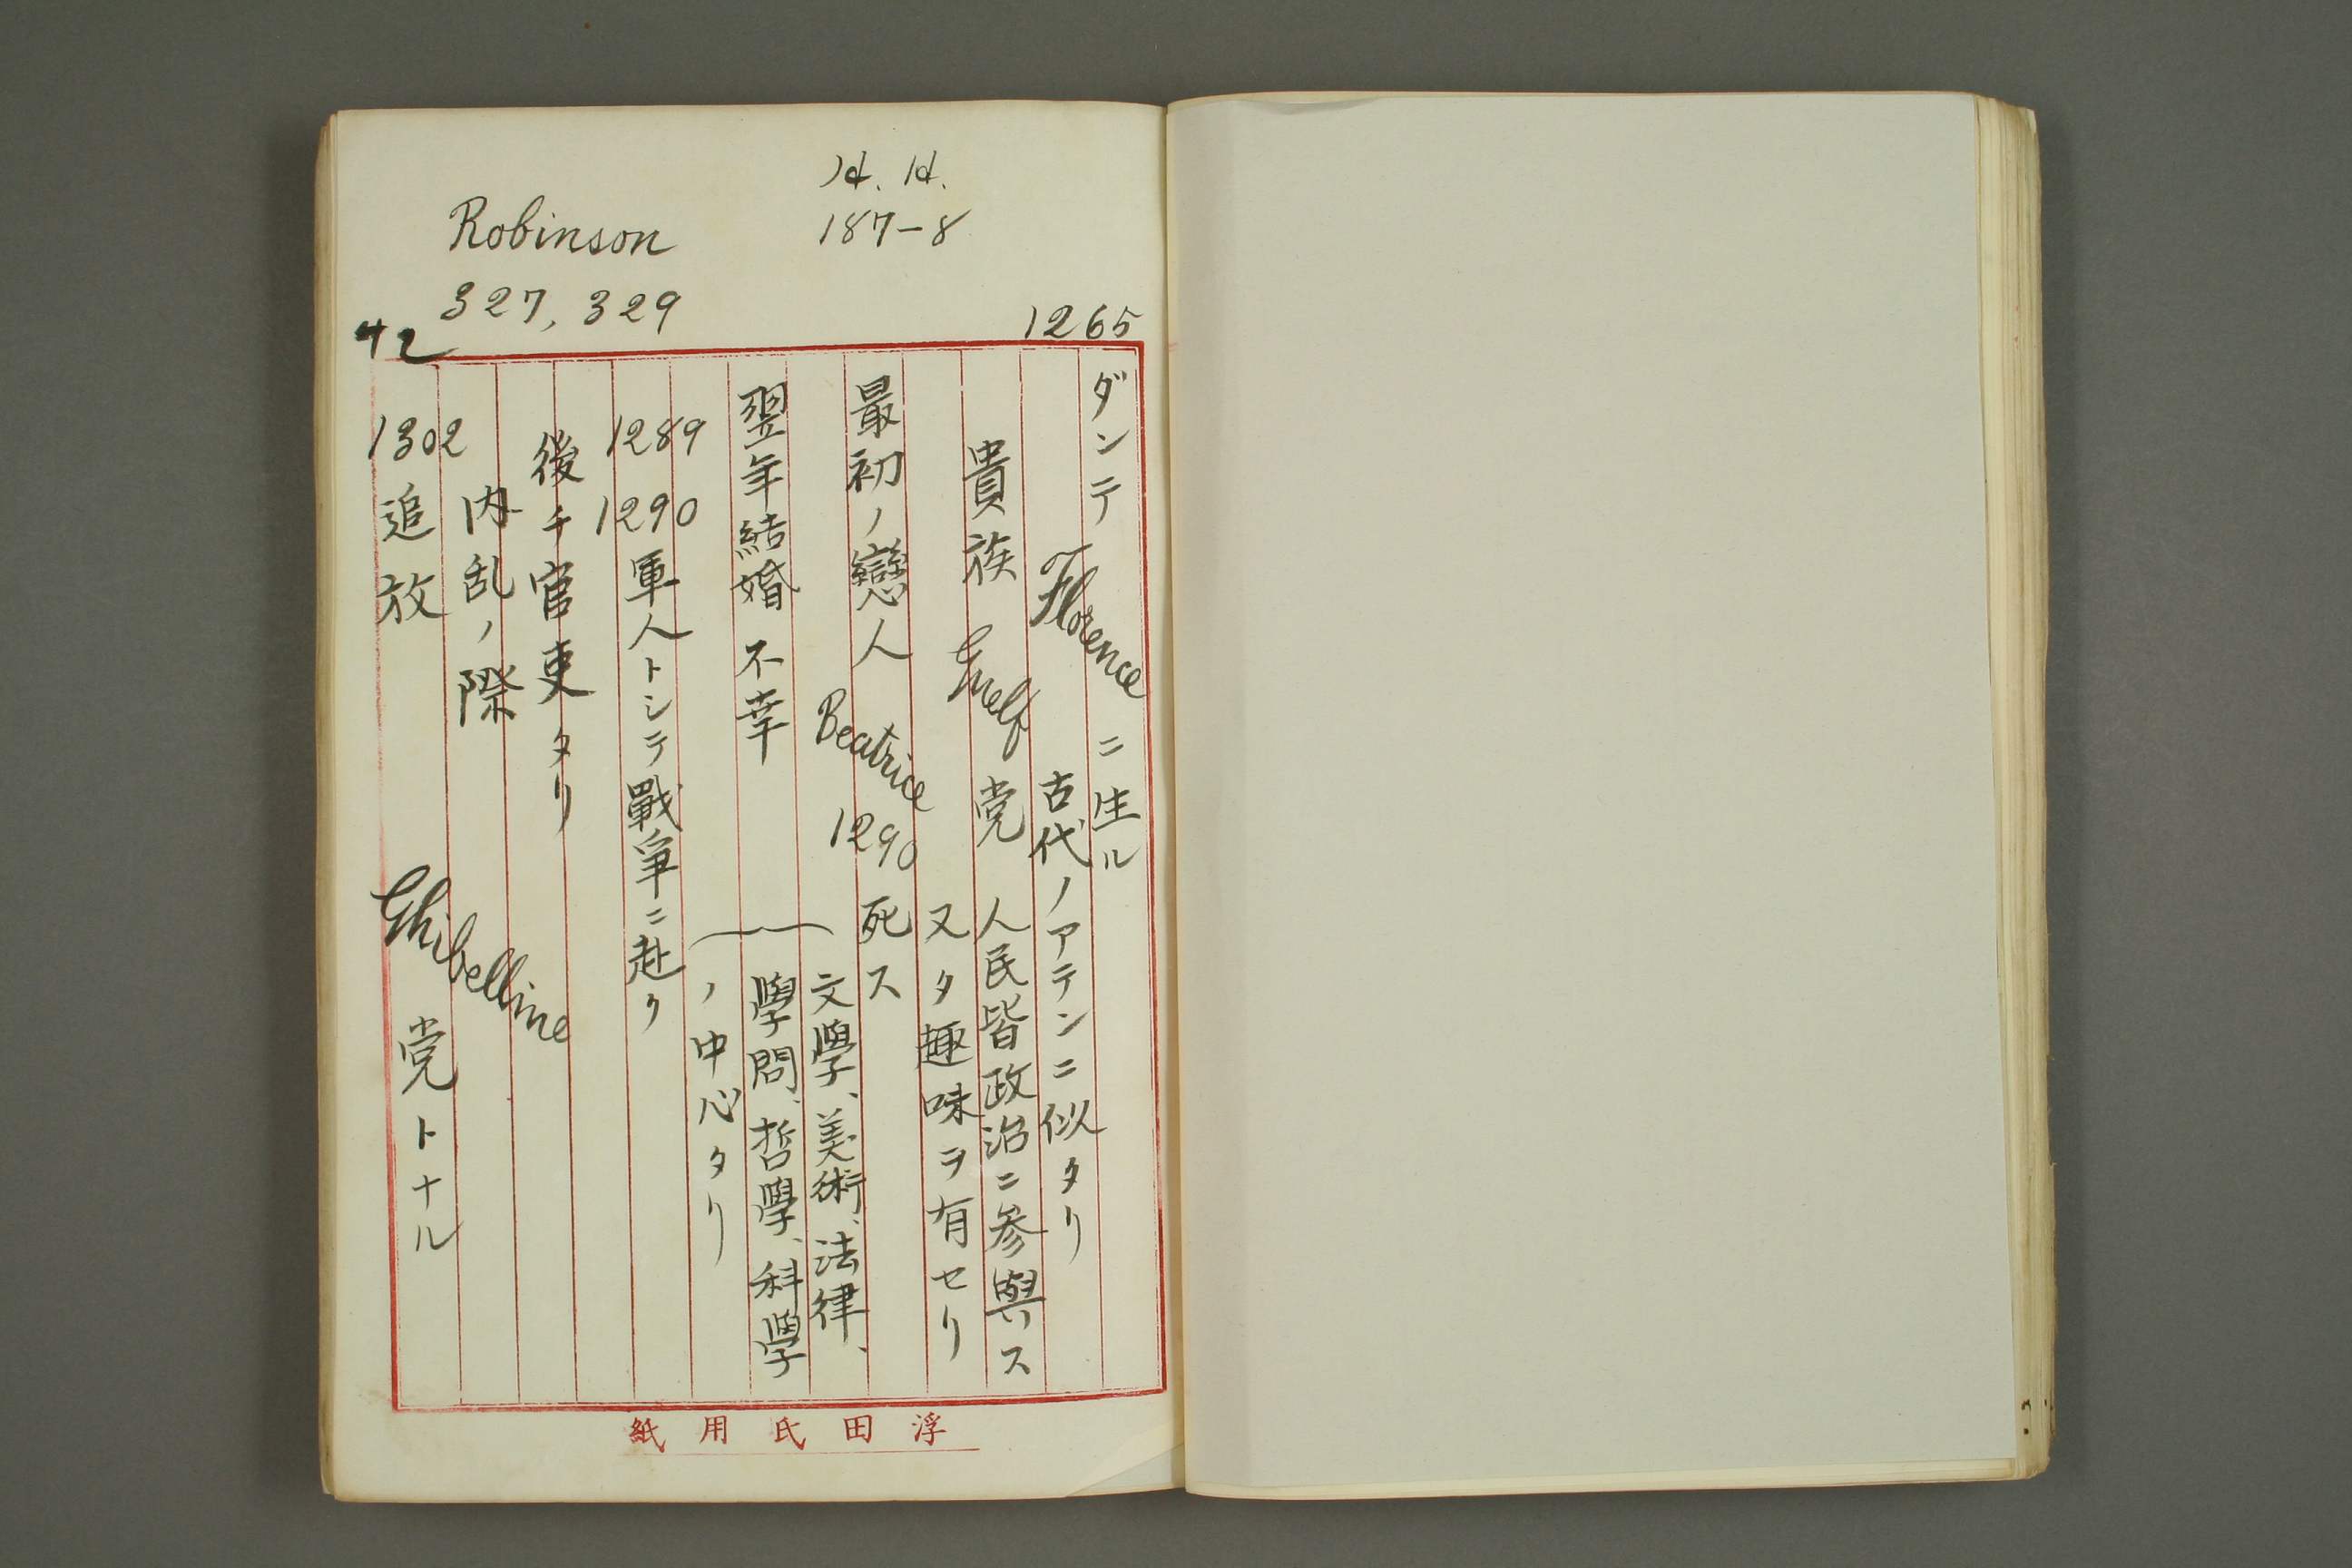 Robinson
327, 329
187-8
42
1265
ダンテ Florence ニ生ル
古代ノアテンニ似タリ
貴族 Guelf 党 人民皆政治ニ参與ス
又タ趣味ヲ有セリ
最初ノ戀人 Beatrice 1290 死ス
文學、美術、法律、
翌年結婚 不幸
學問、哲學、科學
ノ中心タリ
1289
1290 軍人トシテ戰爭ニ赴ク
後チ官吏タリ
内乱ノ際
1302 追放 Ghibelline 党トナル
浮田氏用紙